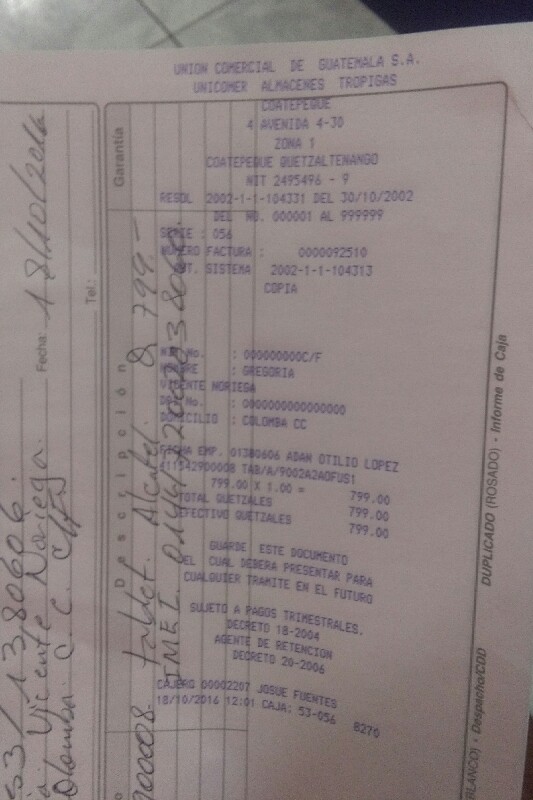 UNION COMERCIAL DE GUATEMALA S.A.
UNICOMER ALMACENES TROPIGAS
COATEPEQUE
4 AVENIDA 4-30
ZONA 1
COATEPEQUE QUETZALTENANGO
NIT 2495496 - 9
RESOL 2002-1-1-104331 DEL 30/10/2002
DEL NO. 000001 AL 999999
SERIE : 056
NUMERO FACTURA : 0000092510
AUT. SISTEMA 2002-1-1-104313
COPIA
NIT No. : 000000000C/F
NOMBRE : GREGORIA
VICENTE NORIEGA
DPI No. : 0000000000000
DOMICILIO : COLOMBA CC
FECHA EMP. 01380606 ADAN OTILIO LOPEZ
411542900008 TAB/A/9002A2AOFUS1
799.00 X 1.00 = 799.00
TOTAL QUETZALES 799.00
EFECTIVO QUETZALES 799.00
GUARDE ESTE DOCUMENTO
DEL CUAL DEBERA PRESENTAR PARA
CUALQUIER TRAMITE EN EL FUTURO
SUJETO A PAGOS TRIMESTRALES,
DECRETO 18-2004
AGENTE DE RETENCION
DECRETO 20-2006
CAJERO 00002207 JOSUE FUENTES
18/10/2016 12:01 CAJA: 53-056 8270
Garantía
Descripción
tablet. Alcatel. Q 799.-
IMEI.
900008
53/1380606.
Vicente Noriega.
Colomba C.C. C/F
Fecha: 18/10/2016
Tel.:
DUPLICADO (ROSADO) - Informe de Caja
BLANCO) - Despacho/CDD